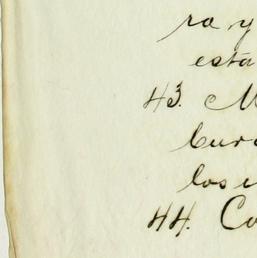 ra y
está
43. M
bur
los
44. Co